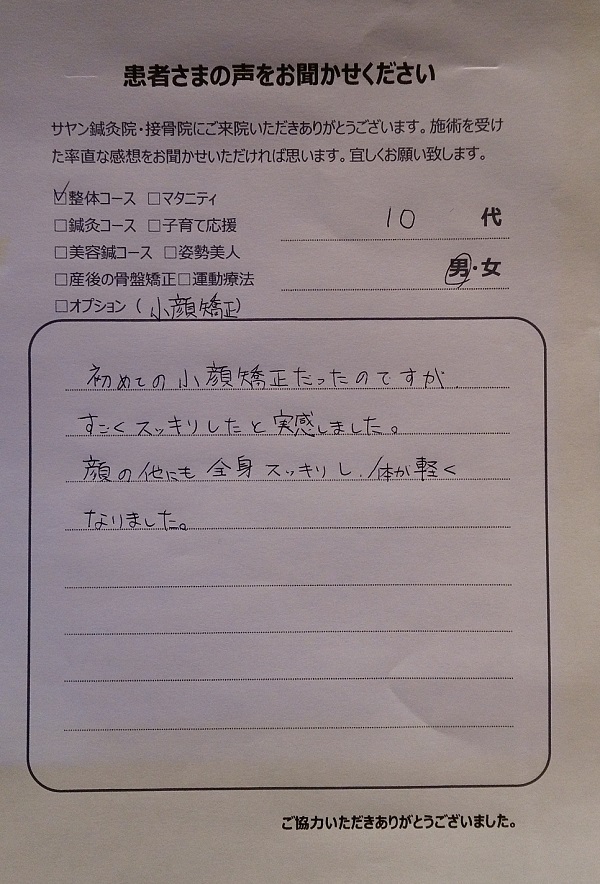 患者さまの声をお聞かせください
サヤン鍼灸院・接骨院にご来院いただきありがとうございます。施術を受け
た率直な感想をお聞かせいただければ思います。宜しくお願い致します。
☑整体コース □マタニティ
□鍼灸コース □子育て応援
□美容鍼コース □姿勢美人
□産後の骨盤矯正□運動療法
□オプション（小顔矯正）
10 代
男・女
初めての小顔矯正だったのですが、
すごくスッキリしたと実感しました。
顔の他にも全身スッキリし、体が軽く
なりました。
ご協力いただきありがとうございました。